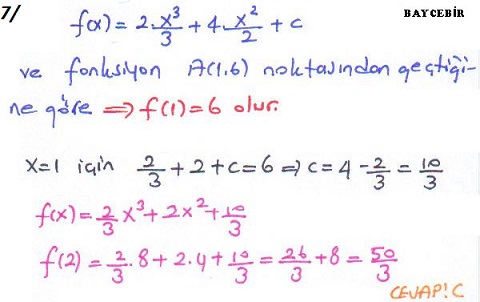 7/ f(x) = 2·x³/3 + 4·x²/2 + c BAYCEBİR
ve fonksiyon A(1,6) noktasından geçtiği-
ne göre ⇒ f(1)=6 olur.
x=1 için 2/3 + 2 + c = 6 ⇒ c = 4 - 2/3 = 10/3
f(x) = 2/3 x³ + 2x² + 10/3
f(2) = 2/3 · 8 + 2·4 + 10/3 = 26/3 + 8 = 50/3
CEVAP: C